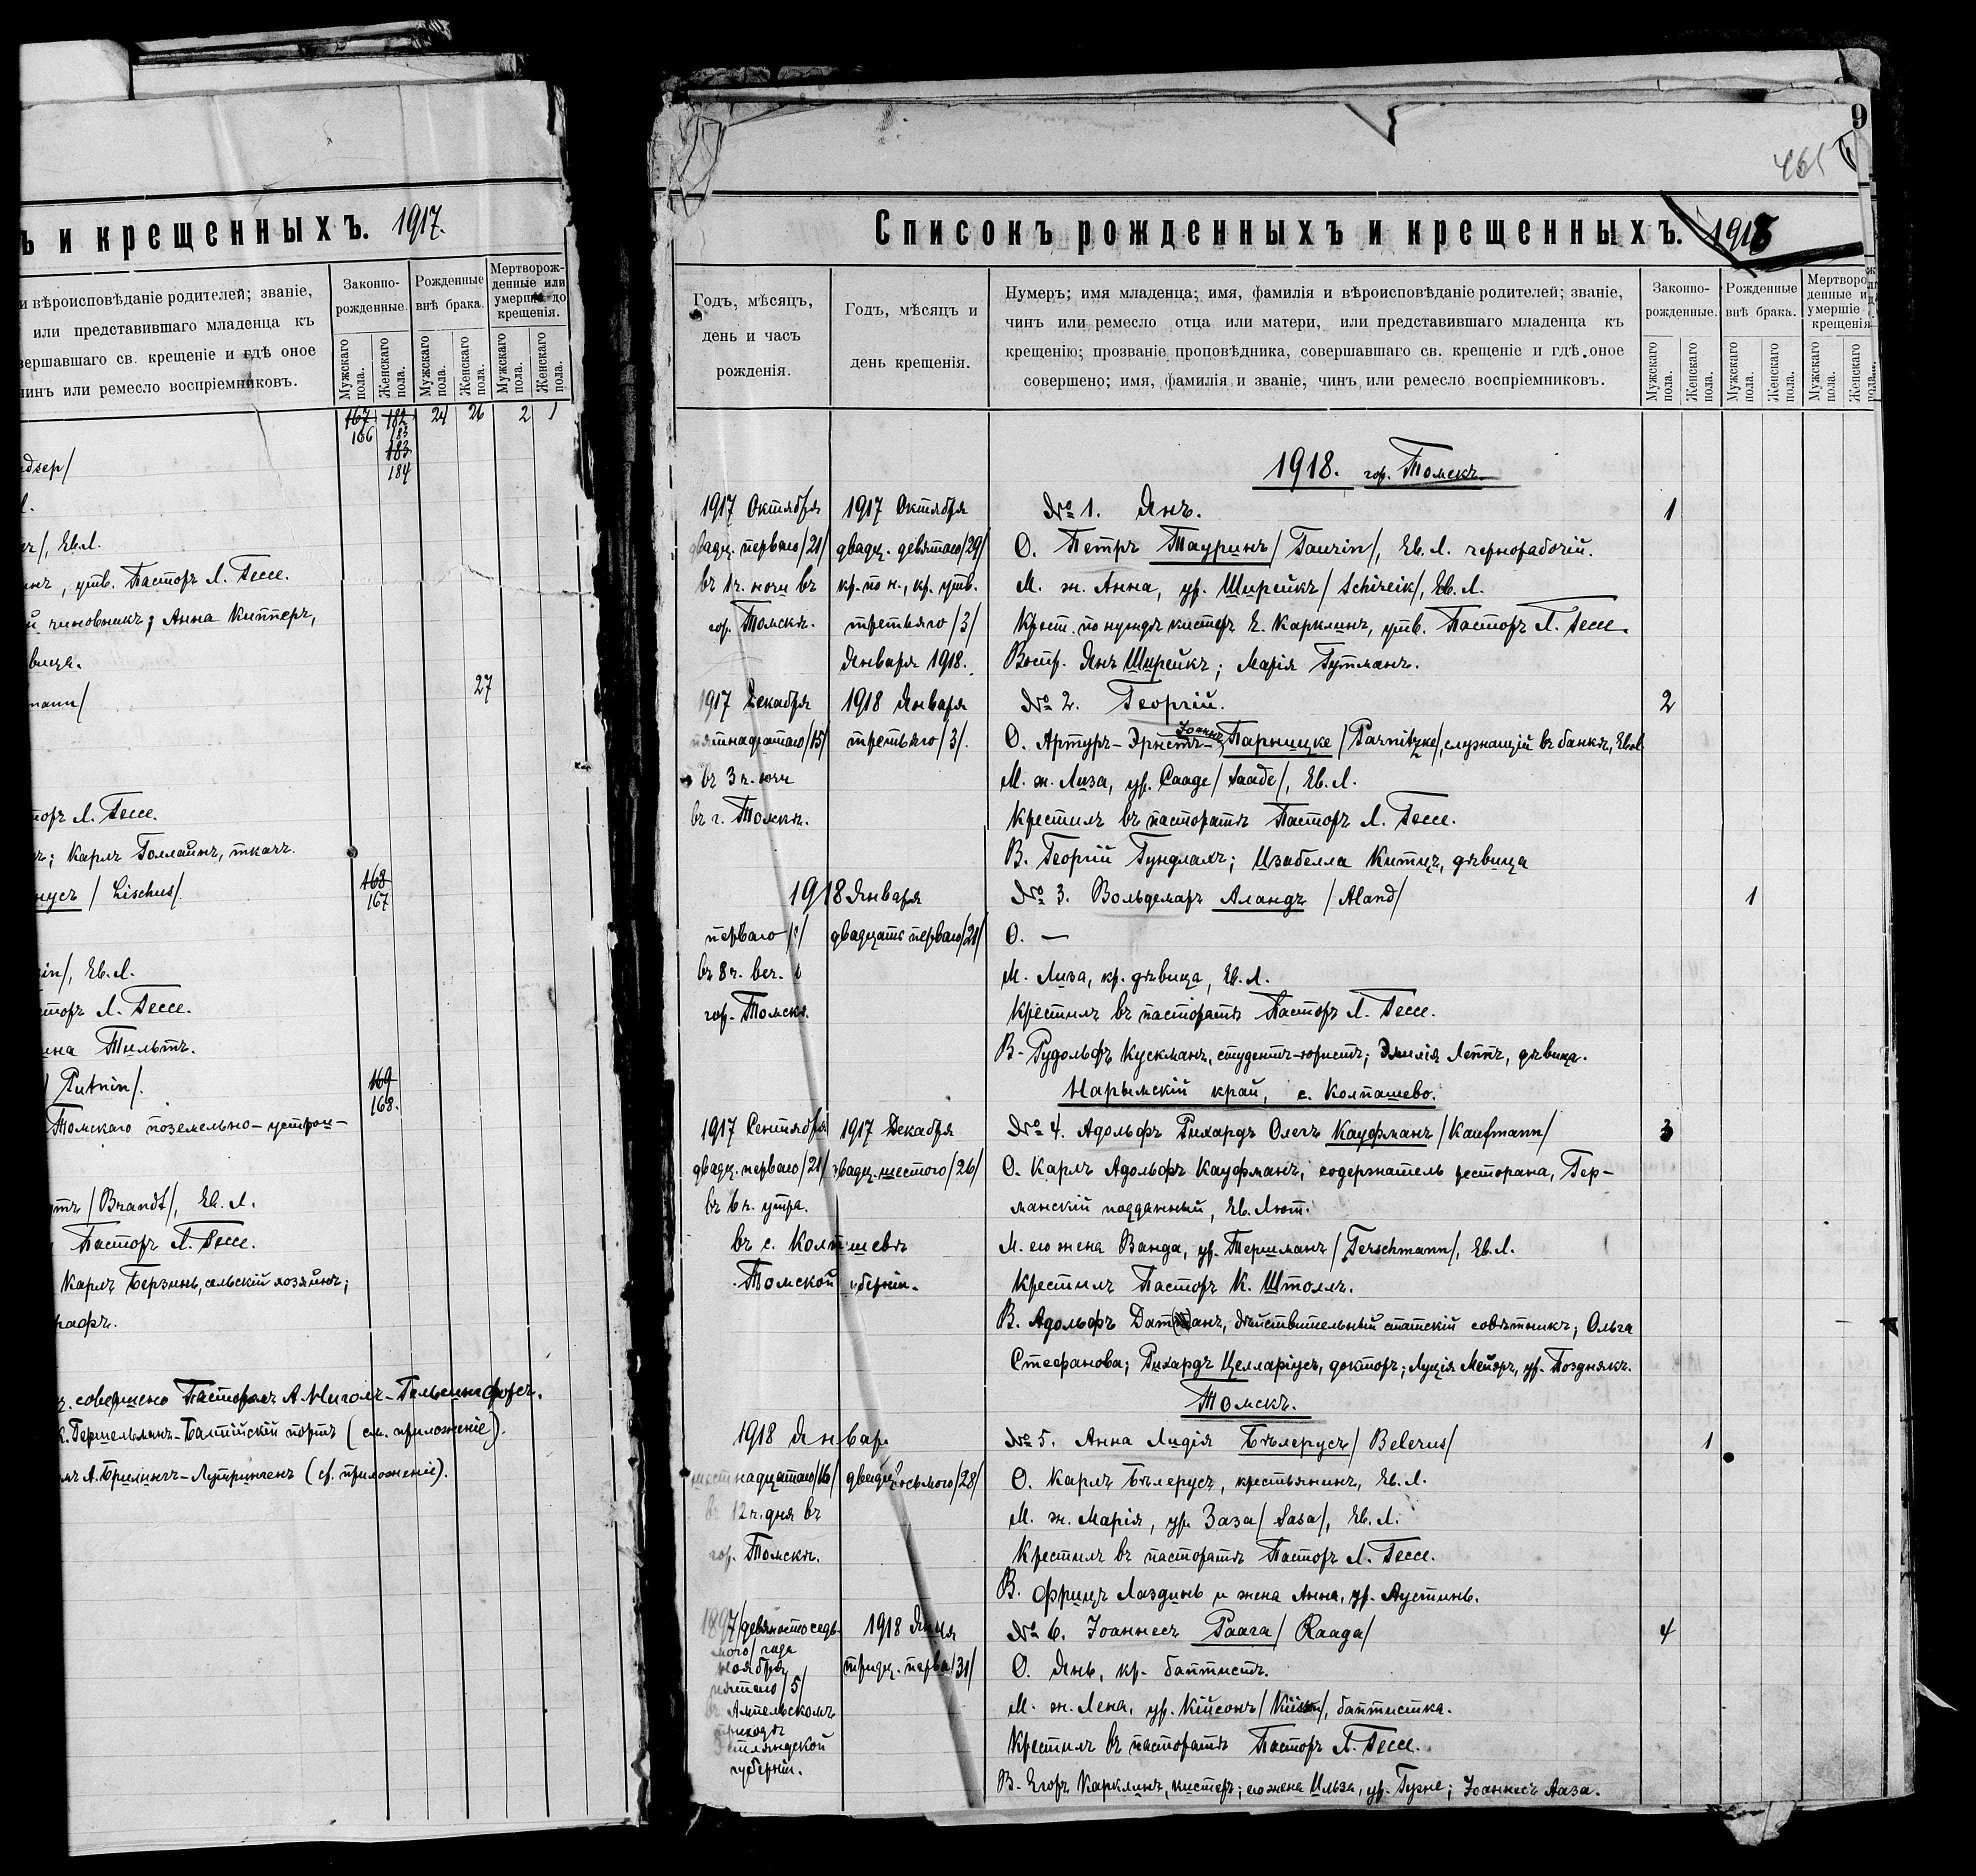 ъ и крещенныхъ. 1917.
и вѣроисповѣданіе родителей; званіе,
или представившаго младенца къ
вершавшаго св. крещеніе и гдѣ оное
чинъ или ремесло воспріемниковъ.
Законно-
рожденные.
Рожденные
внѣ брака.
Мертворож-
денные или
умершіе до
крещенія.
Мужскаго пола.
Женскаго пола.
Мужскаго пола.
Женскаго пола.
Мужскаго пола.
Женскаго пола.
167 182 24 26 2 1
166 183
183
184
dsep/
л.
, Ев.Л.
, утв. Пасторъ Л. Гессе.
й чиновникъ; Анна Кипперъ,
вица.
27
mann/
торъ Л. Гессе.
; Карлъ Голлайнъ, ткачъ.
нусъ / Lischus/
168
167
in/, Ев.Л.
торъ Л. Гессе.
ина Тильтъ.
/ Putnin/.
169
168.
Томскаго поземельно-устрои-
тъ /Brandt/, Ев. Л.
Пасторъ Л. Гессе.
Карлъ Берзинь, сельскій хозяинъ;
рафъ.
совершено Пасторомъ А Мигомъ-Гельсингфорсъ.
К. Гершельманъ-Балтійскій портъ (см. приложеніе).
А. Брилингъ-Лутрингенъ (см. приложеніе).
9
461
Списокъ рожденныхъ и крещенныхъ. 1918
Годъ, мѣсяцъ,
день и часъ
рожденія.
Годъ, мѣсяцъ и
день крещенія.
Нумеръ; имя младенца; имя, фамилія и вѣроисповѣданіе родителей; званіе,
чинъ или ремесло отца или матери, или представившаго младенца къ
крещенію; прозваніе проповѣдника, совершавшаго св. крещеніе и гдѣ оное
совершено; имя, фамилія и званіе, чинъ или ремесло воспріемниковъ.
Законно-
рожденные.
Рожденные
внѣ брака.
Мертворо
денные и
умершіе
крещенія
Мужскаго пола.
Женскаго пола.
Мужскаго пола.
Женскаго пола.
Мужскаго пола.
Женскаго пола.
1918. гор. Томскъ.
1917 Октября 1917 Октября № 1. Янъ. 1
двадц. перваго/21/ двадц. девятаго/29/ О. Петръ Тауринъ /Taurin/, Ев. Л. чернорабочій.
въ 1 ч. ночи въ кр. по н., кр. утв. М. ж. Анна, ур. Ширейкъ /Schireik/, Ев. Л.
гор. Томскѣ. третьяго /3/ Крест. по нуждѣ кистеръ Е. Карклинъ, утв. Пасторъ Л. Гессе.
Января 1918. Воспр. Янъ Ширейкъ; Марія Гутманъ.
1917 Декабря 1918 Января № 2. Георгій. 2
пятнадцатаго/15/ третьяго /3/. О. Артуръ-Эрнстъ-Іоаннъ Парницке /Parnitzke/, служащій въ банкѣ, Ев.Л
въ 3 ч. ночи М. ж. Лиза, ур. Сааде /Saade/, Ев. Л.
въ г. Томскѣ. Крестилъ въ пасторатѣ Пасторъ Л. Гессе.
В. Георгій Гундлахъ; Изабелла Китцъ, дѣвица
1918 Января № 3. Вольдемаръ Аландъ /Aland/ 1
перваго /1/ двадцать перваго/21/ О. —
въ 8 ч. веч. М. Лиза, кр. дѣвица, Ев. Л.
гор. Томскъ. Крестилъ въ пасторатѣ Пасторъ Л. Гессе.
В. Рудольфъ Кускманъ, студентъ-юристъ; Эмилія Леппъ, дѣвица.
Нарымскій край, с. Колпашево.
1917 Сентября 1917 Декабря № 4. Адольфъ Рихардъ Олегъ Кауфманъ /Kaufmann/ 3
двадц. перваго/21/ двадц. шестого /26/ О. Карлъ Адольфъ Кауфманъ, содержатель ресторана, Гер-
въ 6 ч. утра. манскій подданный, Ев. Лют.
въ с. Колпашевѣ М. его жена Ванда, ур. Тершманъ /Terschmann/, Ев. Л.
Томской губерніи. Крестилъ Пасторъ К. Штоллъ.
В. Адольфъ Датманъ, дѣйствительный статскій совѣтникъ; Ольга
Стефанова; Рихардъ Целларіусъ, докторъ; Луція Мейеръ, ур. Позднякъ.
Томскъ.
1918 Января № 5. Анна Лидія Бѣлерусъ /Belerus/ 1
шестнадцатаго/16/ двадц. восьмого /28/ О. Карлъ Бѣлерусъ, крестьянинъ, Ев. Л.
въ 12 ч. дня въ М. ж. Марія, ур. Заза /Sasa/, Ев. Л.
гор. Томскѣ. Крестилъ въ пасторатѣ Пасторъ Л. Гессе.
В. Фрицъ Лаздинь и жена Анна, ур. Аустинь.
1897 /девяносто седь- 1918 Января № 6. Іоаннесъ Раага /Raaga/ 4
мого/ года
ноября тридц. перва/31/ О. Янь, кр. баптистъ.
пятаго /5/
въ Ампельскомъ М. ж. Лена, ур. Кійсонъ /, баптистка.
приходѣ
Эстляндской Крестилъ въ пасторатѣ Пасторъ Л. Гессе.
губерніи.
В. Егоръ Карклинъ, кистеръ; его жена Ильза, ур. ; Іоаннесъ Ааза.